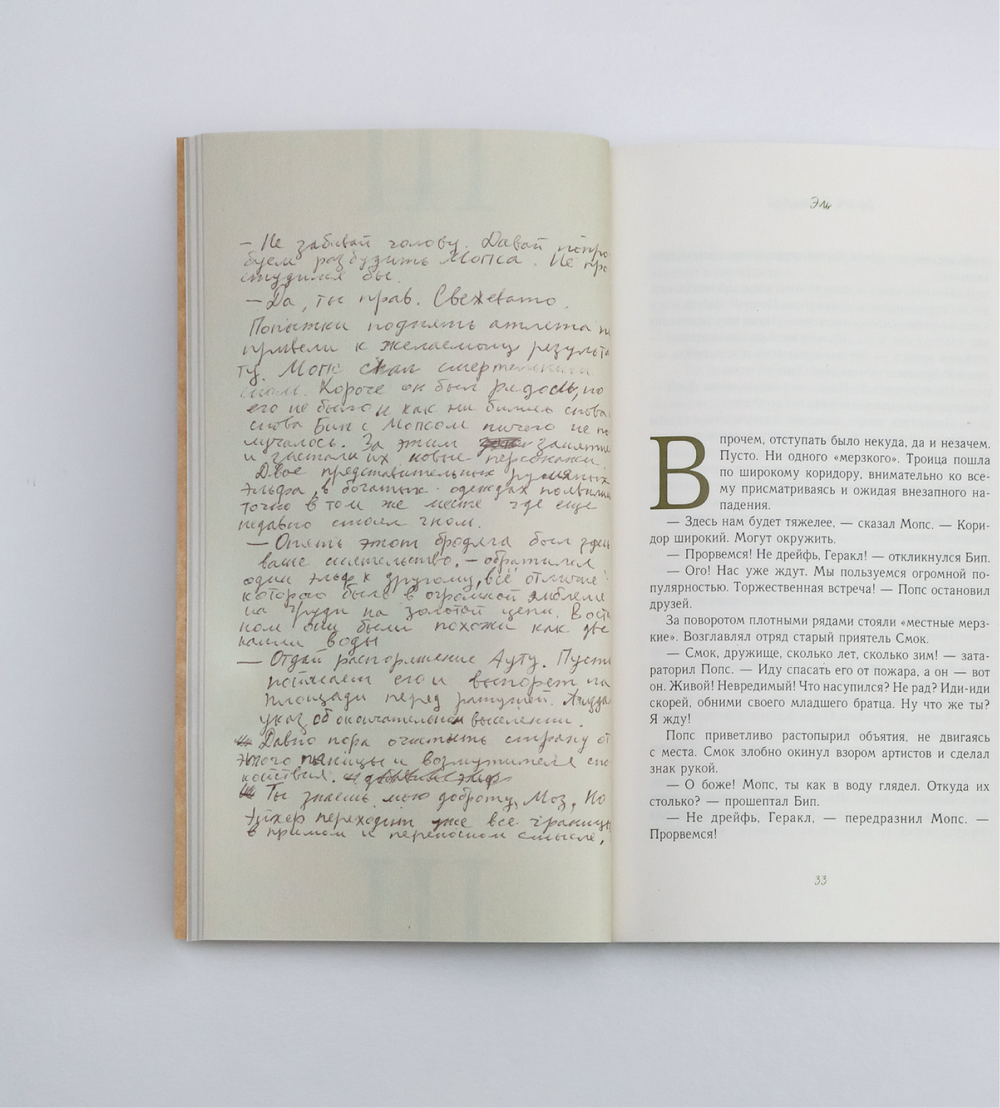 — Не забивай голову. Давай попро
буем разбудить Мопса. Не про
студился бы.
— Да, ты прав. Свежевато.
Попытки поднять атлета не
привели к желаемому результа
ту. Мопс спал смертельным
сном. Короче он был рядом, но
его не было и как ни бились снова
снова Бип с Мопсом ничего не по
лучалось. За этим занятие
и застали их новые персонажи.
Двое представительных румяных
эльфа, в богатых одеждах появили
точно в том же месте где еще
недавно стоял гном.
— Опять этот бродяга был здесь
ваше сиятельство, — обратился
один эльф к другому, всё отличие
которого было в огромной эмблеме
на груди на золотой цепи. В ост
ном они были похожи как две
капли воды
— Отдай распоряжение Ауту. Пусть
поймает его и выпорет на
площади перед ратушей. А
указ об окончательном выселении.
Давно пора очистить страну от
этого пьяницы и возмутителя спо
койствия.
Ты знаешь мою доброту, Моз. Но
переходит уже все границы
в прямом и переносном смысле,
Эли
Впрочем, отступать было некуда, да и незачем.
Пусто. Ни одного «мерзкого». Троица пошла
по широкому коридору, внимательно ко все-
му присматриваясь и ожидая внезапного на-
падения.
— Здесь нам будет тяжелее, — сказал Мопс. — Кори-
дор широкий. Могут окружить.
— Прорвемся! Не дрейфь, Геракл! — откликнулся Бип.
— Ого! Нас уже ждут. Мы пользуемся огромной по-
пулярностью. Торжественная встреча! — Попс остановил
друзей.
За поворотом плотными рядами стояли «местные мерз-
кие». Возглавлял отряд старый приятель Смок.
— Смок, дружище, сколько лет, сколько зим! — зата-
раторил Попс. — Иду спасать его от пожара, а он — вот
он. Живой! Невредимый! Что насупился? Не рад? Иди-иди
скорей, обними своего младшего братца. Ну что же ты?
Я жду!
Попс приветливо растопырил объятия, не двигаясь
с места. Смок злобно окинул взором артистов и сделал
знак рукой.
— О боже! Мопс, ты как в воду глядел. Откуда их
столько? — прошептал Бип.
— Не дрейфь, Геракл, — передразнил Мопс. —
Прорвемся!
33